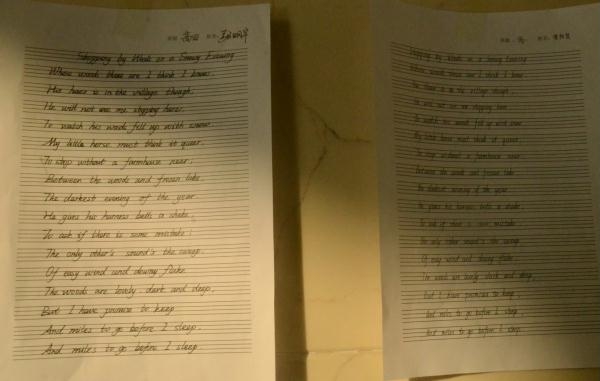 班级 高四 姓名
Stopping by Woods on a Snowy Evening
Whose woods these are I think I know.
His house is in the village though,
He will not see me stopping here,
To watch his woods fill up with snow.
My little horse must think it queer,
To stop without a farmhouse near,
Between the woods and frozen lake.
The darkest evening of the year.
He gives his harness bells a shake,
To ask if there is some mistake;
The only other's sound's the sweep,
Of easy wind and downy flake
The woods are lovely, dark and deep,
But I have promise to keep
And miles to go before I sleep,
And miles to go before I sleep
班级 姓名
Stopping by Woods on a Snowy Evening
Whose woods these are I think I know
His house is in the village though,
He will not see me stopping here
To watch his woods fill up with snow
My little horse must think it queer
To stop without a farmhouse near
Between the woods and frozen lake
The darkest evening of the year
He gives his harness bells a shake,
To ask if there is some mistake
The only other sound's the sweep
Of easy wind and downy flake
The woods are lovely dark and deep
But I have promises to keep,
And miles to go before I sleep
And miles to go before I sleep